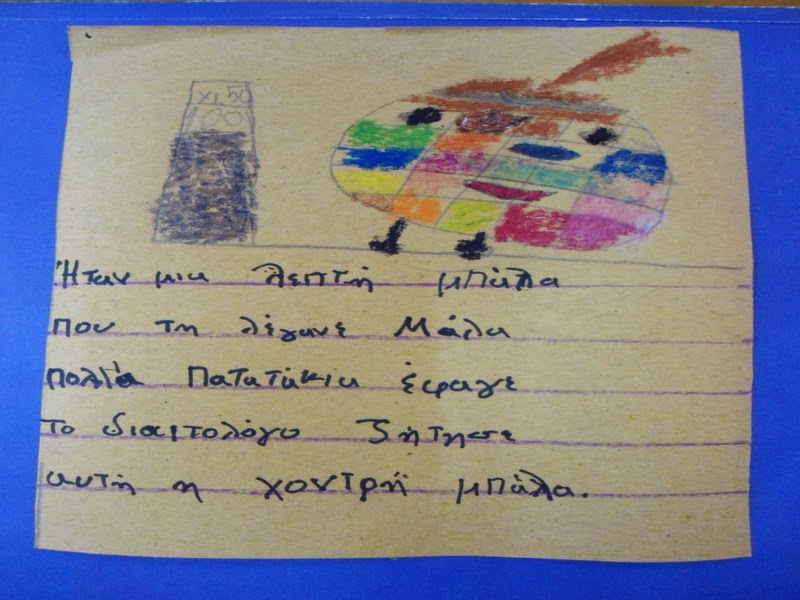 Χ1,50
Ήταν μια λεπτή μπάλα
που τη λέγανε Μάλα
πολλά Πατατάκια έφαγε
το διαιτολόγο ζήτησε
αυτή η χοντρή μπάλα.